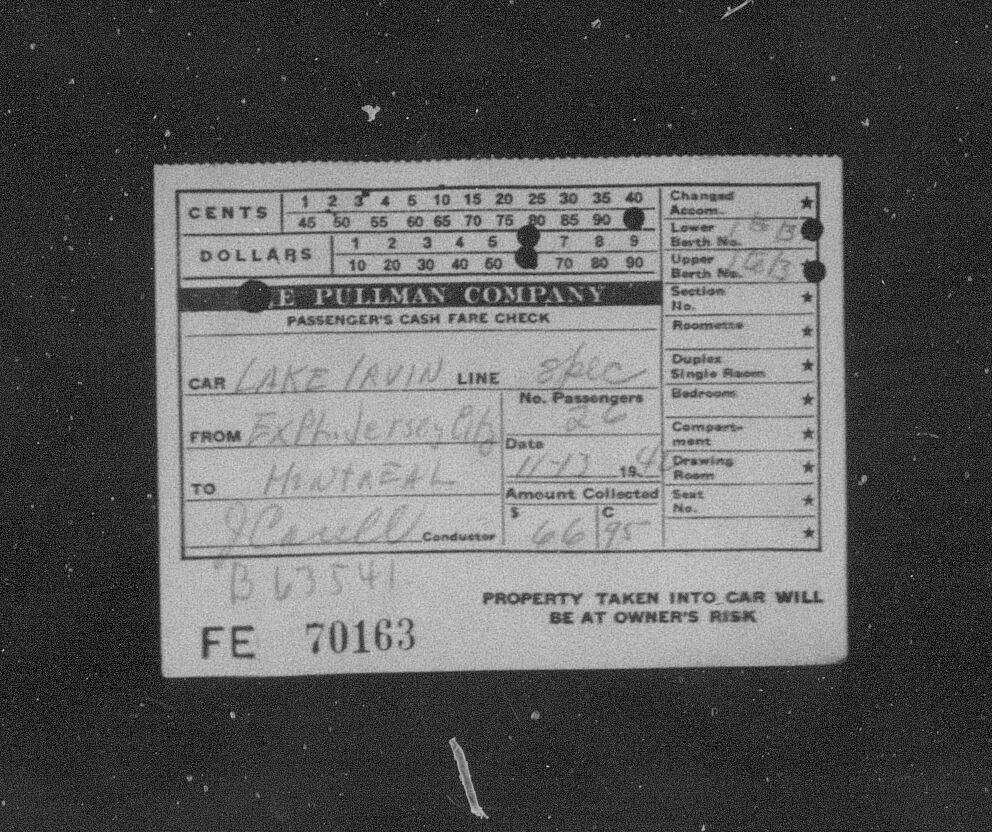 CENTS 1 2 3 4 5 10 15 20 25 30 35 40
45 50 55 60 65 70 75 80 85 90
DOLLARS 1 2 3 4 5 7 8 9
10 20 30 40 50 70 80 90
E PULLMAN COMPANY
PASSENGER'S CASH FARE CHECK
CAR LAKE LINE Spec
FROM Ex Ph. Jersey City
TO MONTREAL
Conductor
No. Passengers
26
Date
11-13 1940
Amount Collected
$ 66 C 95
Changed
Accom.
Lower
Berth No.
Upper
Berth No.
Section
No.
Roomette
Duplex
Single Room
Bedroom
Compart-
ment
Drawing
Room
Seat
No.
B 63541
FE 70163
PROPERTY TAKEN INTO CAR WILL
BE AT OWNER'S RISK